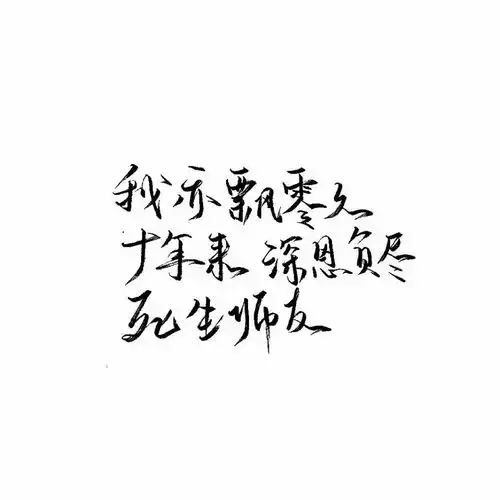 我亦飘零久
十年来 深恩负尽
死生师友